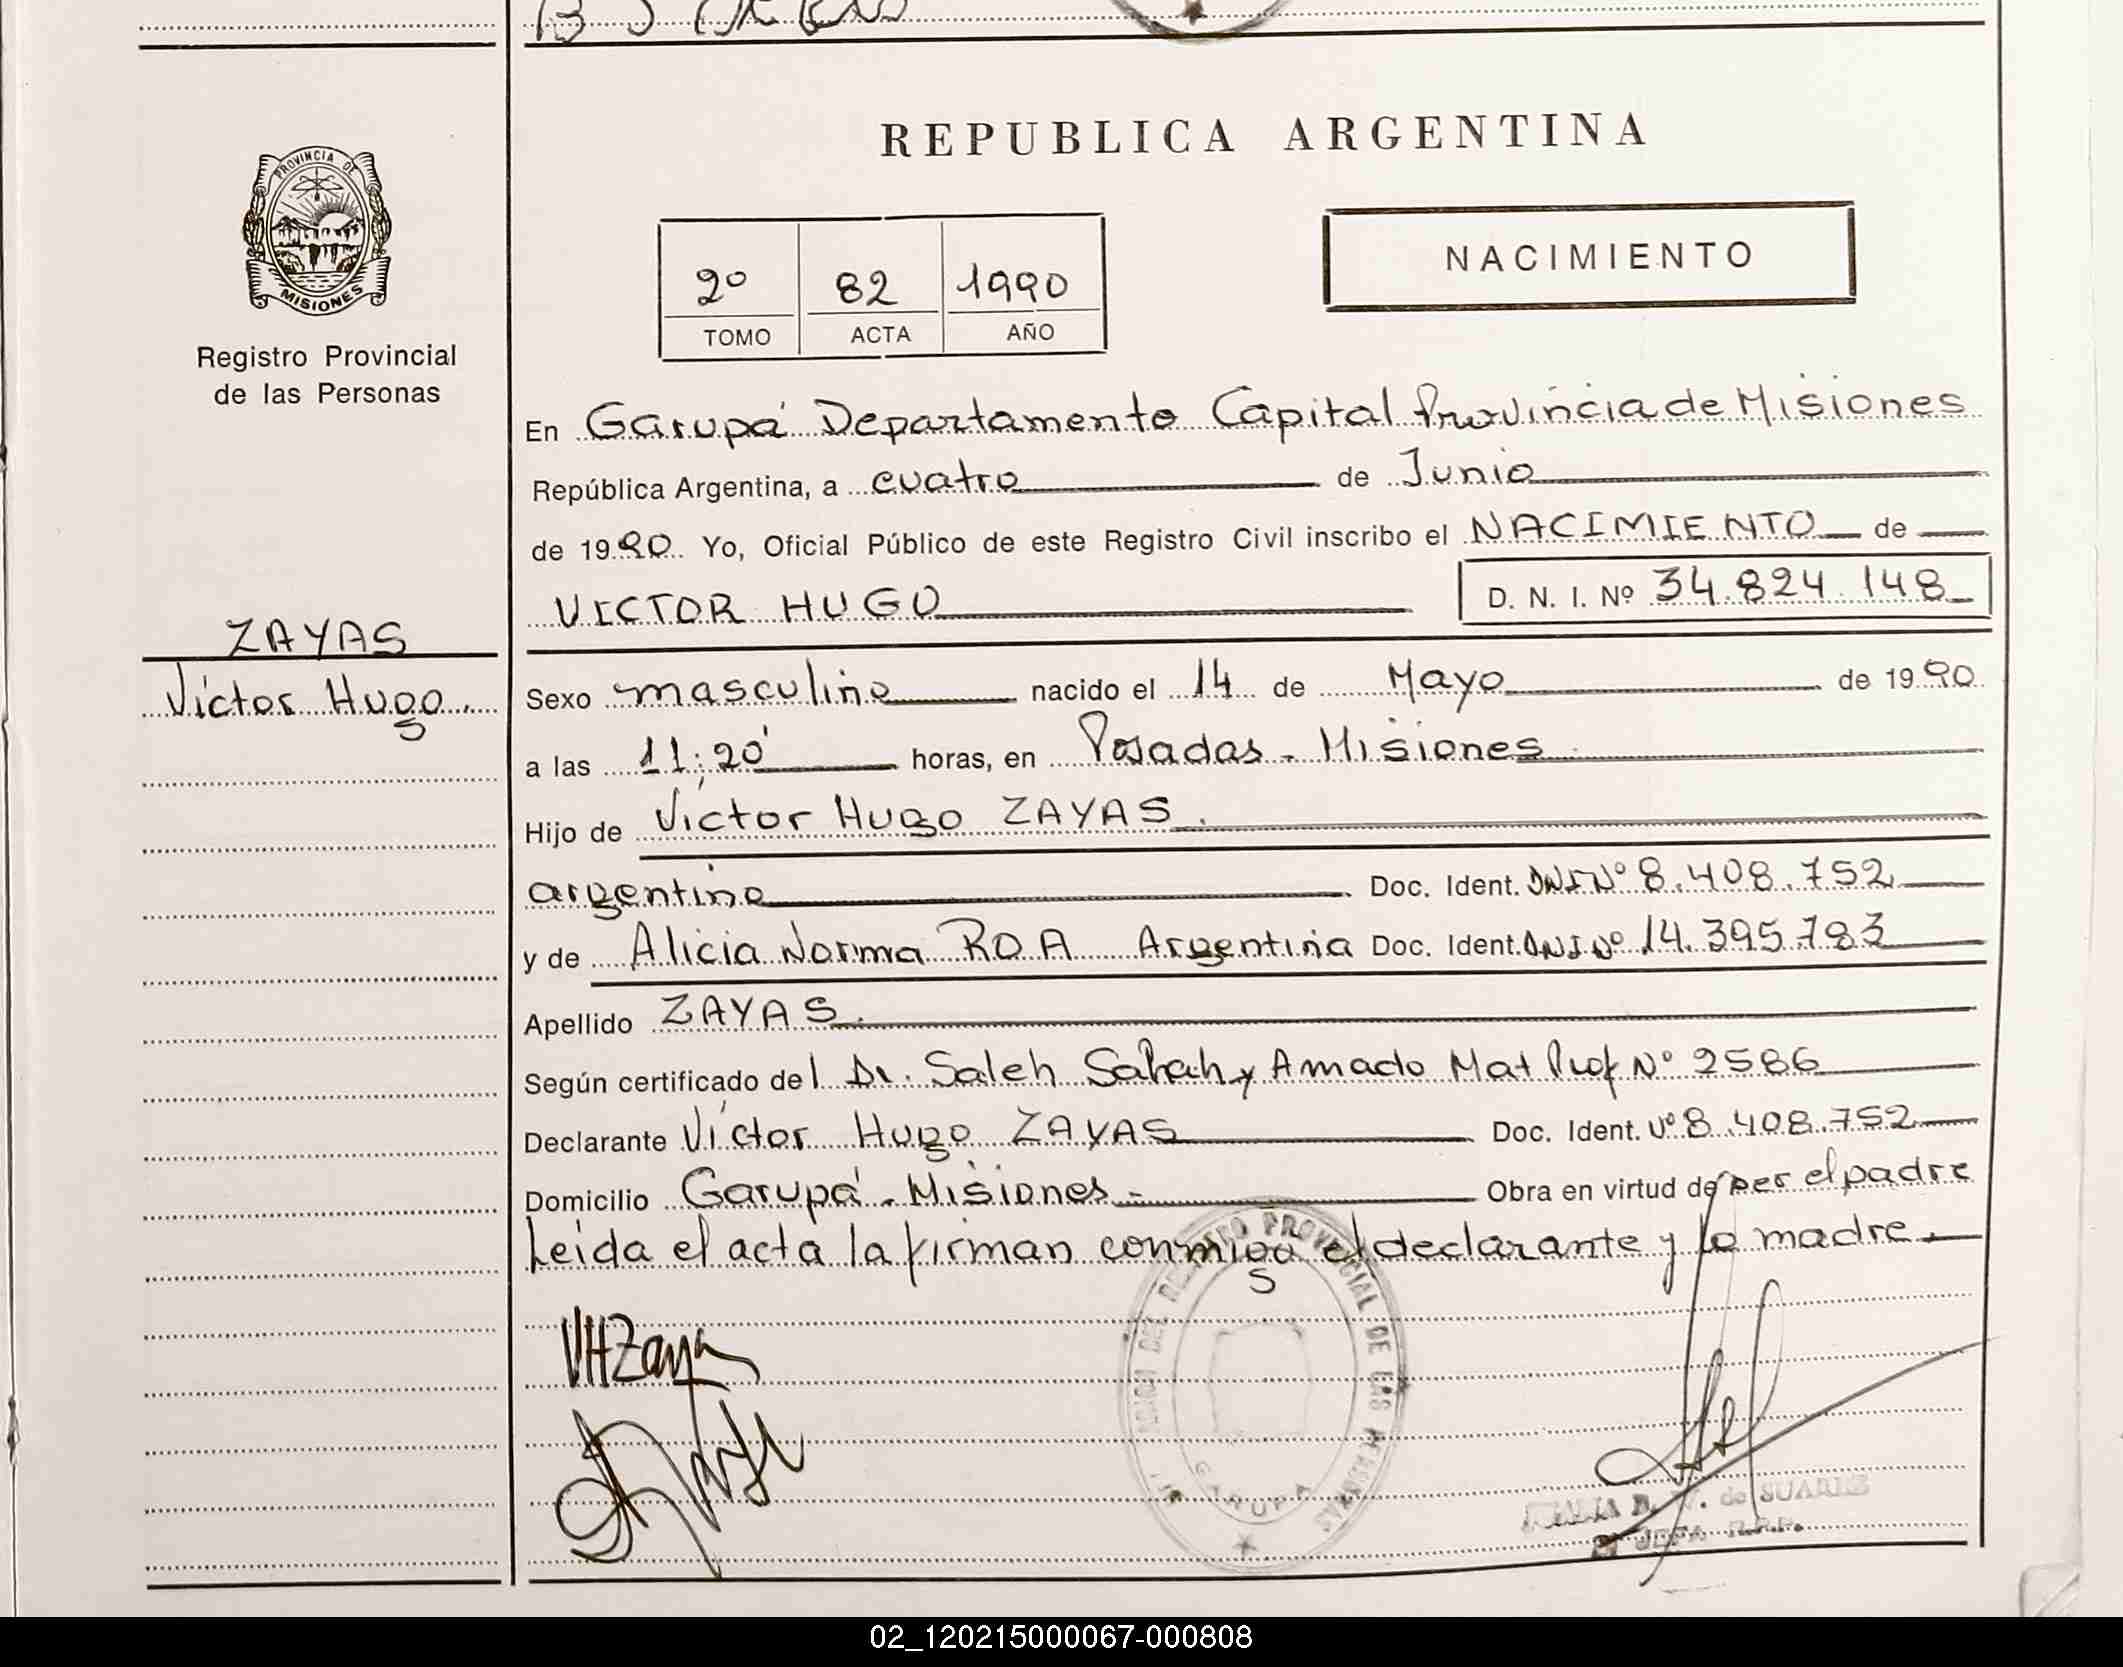 REPUBLICA ARGENTINA
PROVINCIA DE
MISIONES
Registro Provincial
de las Personas
2º 82 1990
TOMO ACTA AÑO
NACIMIENTO
ZAYAS
Víctor Hugo.
En Garupá Departamento Capital Provincia de Misiones
República Argentina, a cuatro de Junio
de 1990 Yo, Oficial Público de este Registro Civil inscribo el NACIMIENTO de
VICTOR HUGO D. N. I. Nº 34.824.148
Sexo masculino nacido el 14 de Mayo de 1990
a las 11:20' horas, en Posadas - Misiones
Hijo de Víctor Hugo ZAYAS.
argentino Doc. Ident. DNI Nº 8.408.752
y de Alicia Norma ROA Argentina Doc. Ident. DNI Nº 14.395.783
Apellido ZAYAS.
Según certificado del Dr. Saleh y Amado Mat Prof Nº 2586
Declarante Víctor Hugo ZAYAS Doc. Ident. Nº 8.408.752
Domicilio Garupá - Misiones - Obra en virtud de ser el padre
Leída el acta la firman conmigo el declarante y la madre.
VHZayas
REGISTRO PROVINCIAL DE LAS PERSONAS
GARUPA
de SUAREZ
JEFA R.P.P.
02_120215000067-000808